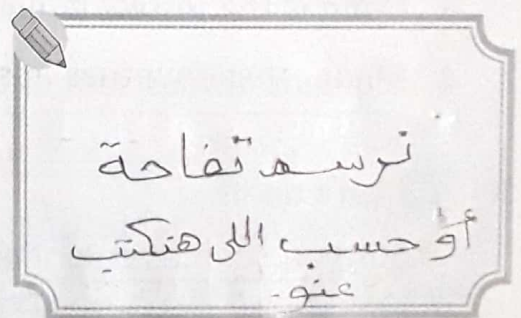 نرسم تفاحة
أو حسب اللى هتكتب
عنو.